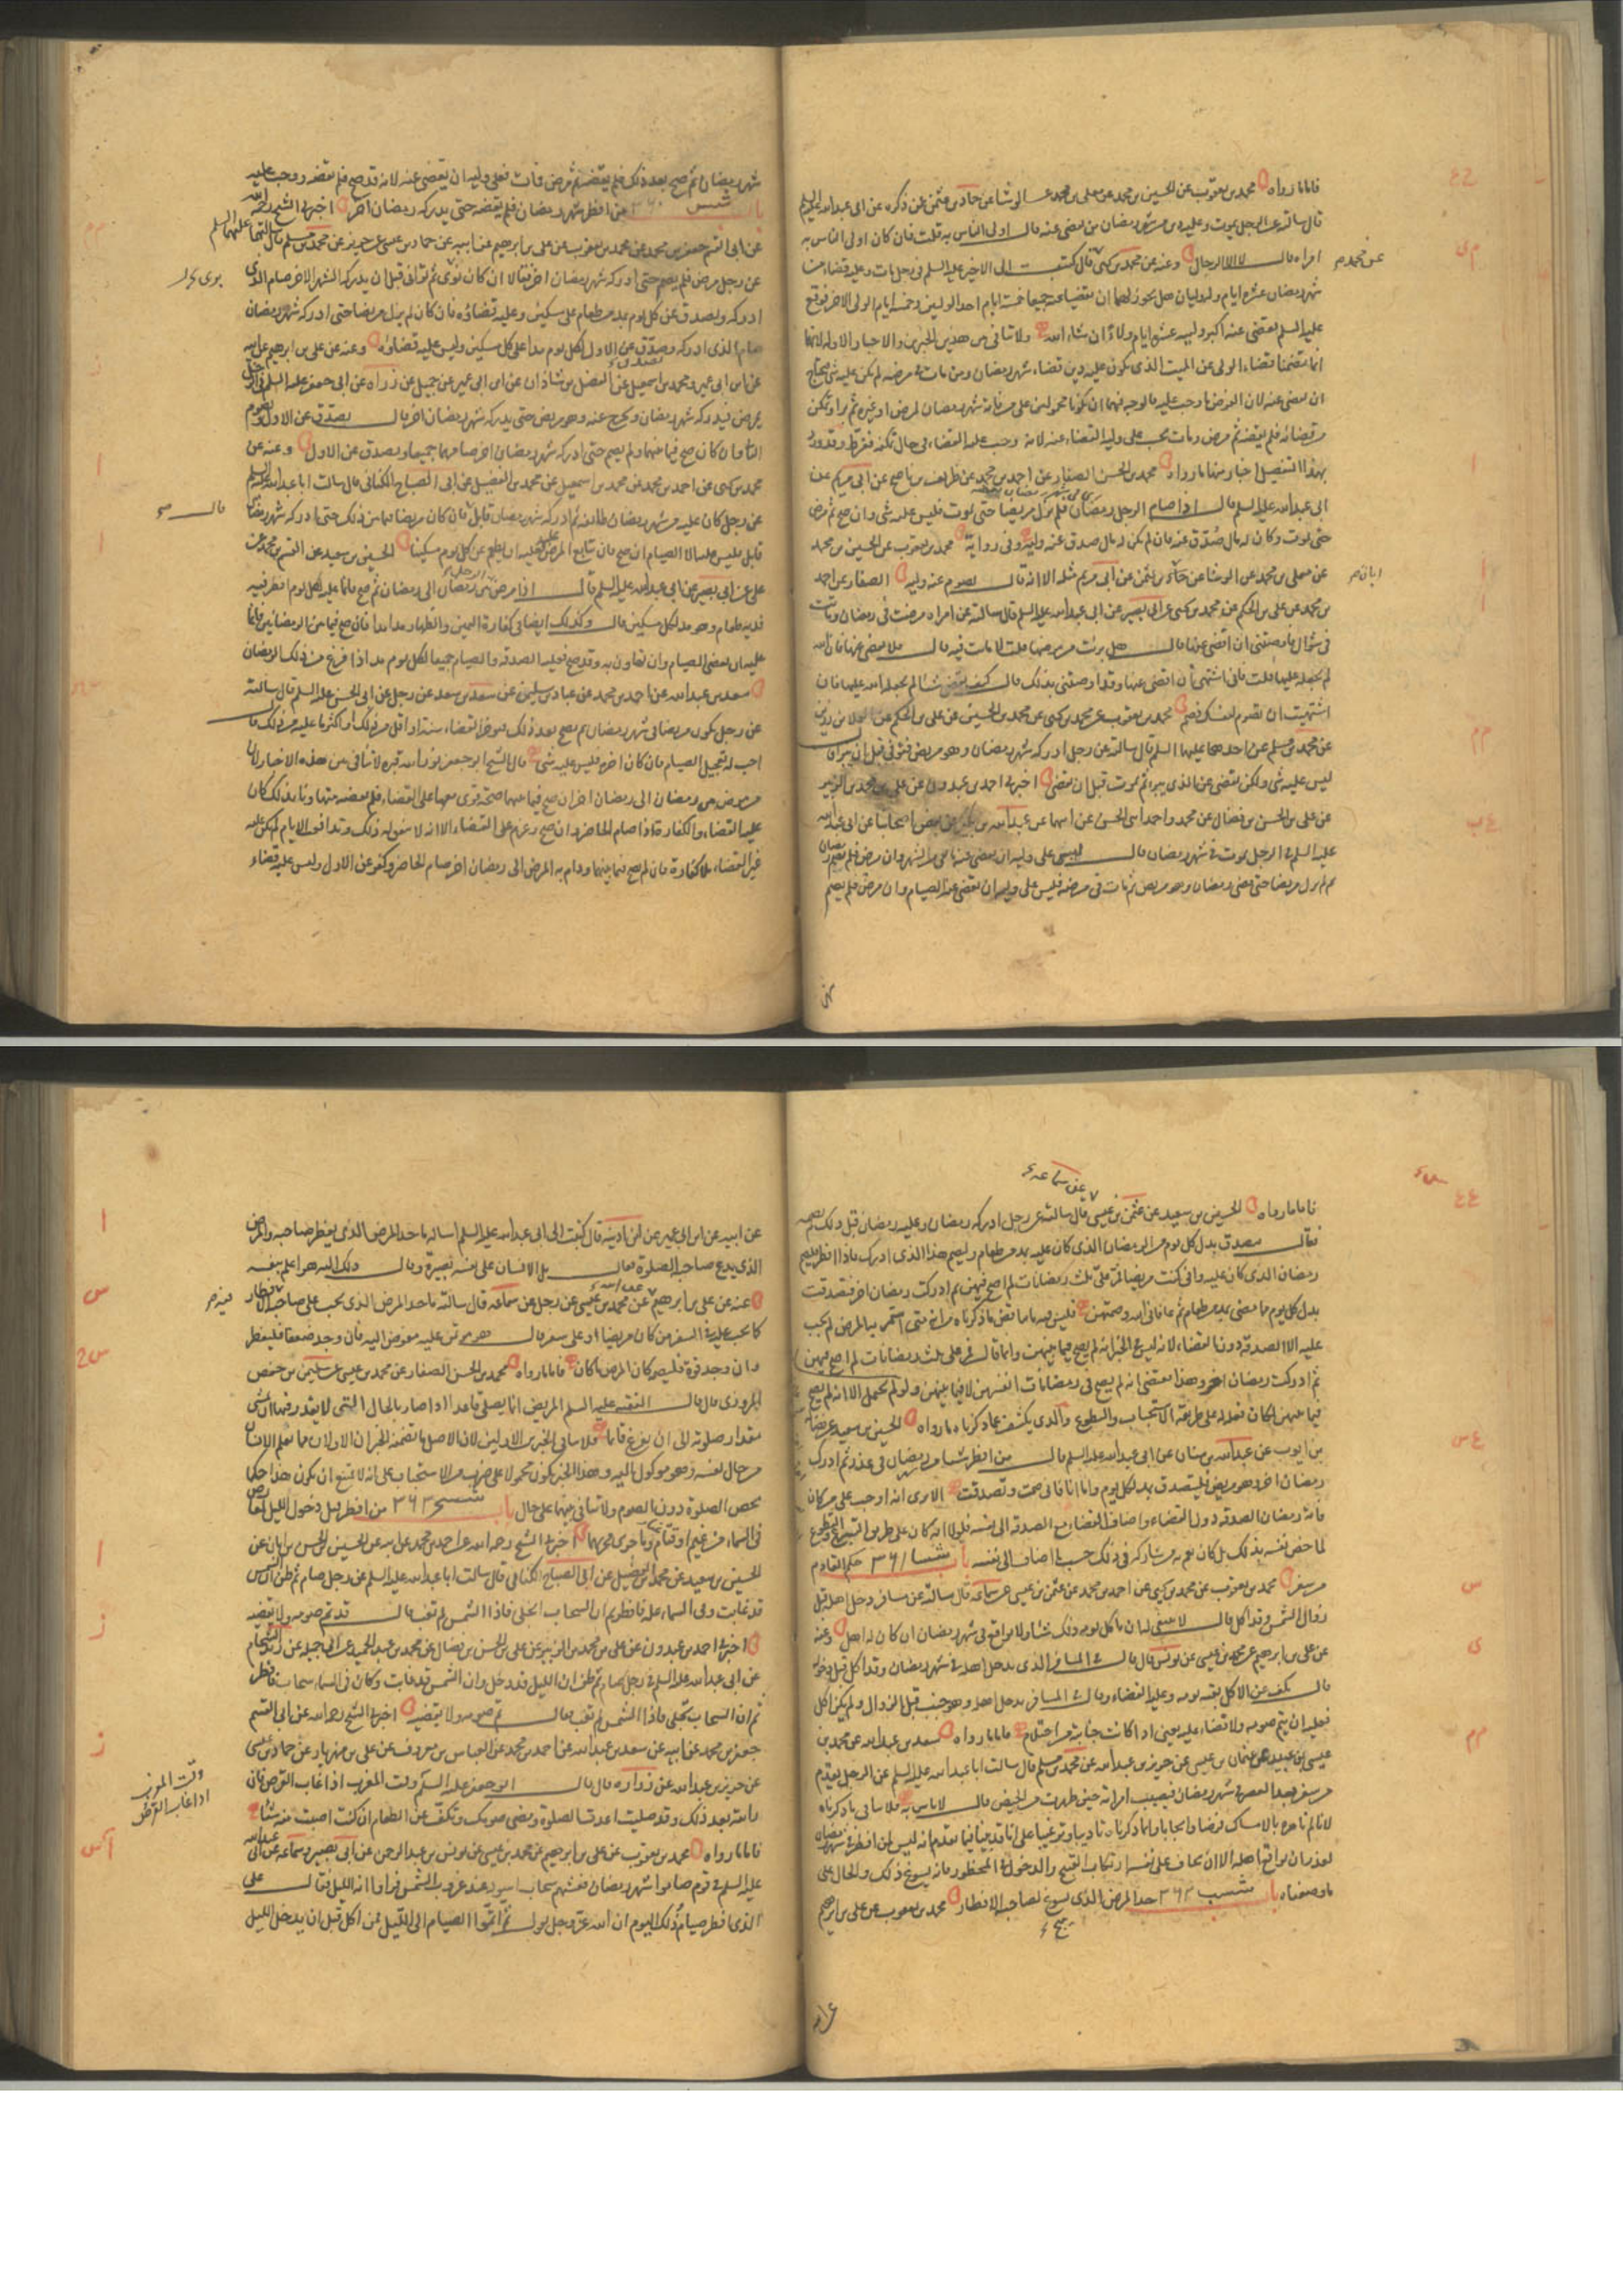 فاما ما رواه محمد بن يعقوب عن الحسين بن محمد عن معلى بن محمد عن الوشا عن حماد بن عثمن عن ذكره عن ابى عبد الله عليه السلم
قال سالته عن الرجل يموت وعليه دين من شهر رمضان من يقضى عنه قال اولى الناس به قلت فان كان اولى الناس به
امراه قال لا الا الرجال وعنه عن محمد بن يحيى قال كتبت الى الاخير عليه السلم فى رجل مات وعليه قضاء من
شهر رمضان عشره ايام وله وليان هل يجوز لهما ان يقضيا عنه جميعا خمسة ايام احد الوليين وخمسه ايام الولى الاخر فوقع
عليه السلم يقضى عنه اكبر ولييه عشره ايام ولاء ان شاء الله ولا تنافى بين هذين الخبرين والاخبار الاوله لانها
انما تضمنا قضاء الولى عن الميت الذى يكون عليه دين قضاء شهر رمضان ومن مات فى مرضه لم يكن عليه شى يحتاج
ان يقضى عنه لان الفرض ما وجب عليه فالوجه فيهما ان يكونا محمولين على من فاته شهر رمضان لمرض او غيره ثم برا وتمكن
من قضائه فلم يقضه ثم مرض ومات يجب على وليه القضاء عنه لانه وجب عليه القضاء فى حال تمكنه ففرط وقد ورد
بهذا التفصيل اخبار منها ما رواه محمد بن الحسن الصفار عن احمد بن محمد عن ظريف بن ناصح عن ابى مريم عن
ابى عبد الله عليه السلم قال اذا صام الرجل رمضان فلم يزل مريضا حتى يموت فليس عليه شى وان صح ثم مرض
حتى يموت وكان له مال صدق عنه فان لم يكن له مال صدق عنه وليه وفى رواية محمد بن يعقوب عن الحسين بن محمد
عن معلى بن محمد عن الوشا عن حماد بن عثمن عن ابى مريم مثله الا انه قال يصوم عنه وليه الصفار عن احمد
بن محمد عن على بن الحكم عن محمد بن يحيى عن ابى بصير عن ابى عبد الله عليه السلم قال سالته عن امراه مرضت فى رمضان وماتت
فى شوال فاوصتنى ان اقضى عنها قال هل برئت من مرضها قلت لا ماتت فيه قال فلا يقضى عنها فان الله
لم يجعله عليها قلت فانى اشتهى ان اقضى عنها وقد اوصتنى بذلك قال كيف تقضى شيئا لم يجعله الله عليها فان
اشتهيت ان تصوم لنفسك فصم محمد بن يعقوب عن محمد بن يحيى عن محمد بن الحسين عن على بن الحكم عن العلا بن رزين
عن محمد بن مسلم عن احدهما عليهما السلم قال سالته عن رجل ادركه شهر رمضان وهو مريض فتوفى قبل ان يبرا قال
ليس عليه شى ولكن يقضى عن الذى يبرا ثم يموت قبل ان يقضى اخبرنى احمد بن عبدون عن على بن محمد بن الزبير
عن على بن الحسن بن فضال عن محمد واحمد ابنى الحسن عن ابيهما عن عبد الله بن بكير عن بعض اصحابنا عن ابى عبد الله
عليه السلم فى الرجل يموت فى شهر رمضان قال ليس على وليه ان يقضى عنه ما بقى من الشهر وان مرض فلم يصم رمضان
ثم لم يزل مريضا حتى مضى رمضان وهو مريض ثم مات فى مرضه فليس على وليه ان يقضى عنه الصيام وان مرض فلم يصم
شهر رمضان ثم صح بعد ذلك فلم يقضه ثم مرض فمات فعلى وليه ان يقضى عنه لانه قد صح فلم يقضه ووجب عليه
باب ٣٦٠ من افطر شهر رمضان فلم يقضه حتى يدركه رمضان اخر اخبرنى الشيخ رحمه الله
عن ابى القسم جعفر بن محمد عن محمد بن يعقوب عن على بن ابرهيم عن ابيه عن حماد بن عيسى عن حريز عن محمد بن مسلم قال سالتهما عليهما السلم
عن رجل مرض فلم يصم حتى ادركه شهر رمضان اخر فقالا ان كان نوى ثم توانى قبل ان يدركه الشهر الاخر صام الذى
ادركه وتصدق عن كل يوم بمد من طعام على مسكين وعليه قضاؤه فان كان لم يزل مريضا حتى ادركه شهر رمضان
صام الذى ادركه وتصدق عن الاول لكل يوم مدا على كل مسكين وليس عليه قضاؤه وعنه عن على بن ابرهيم عن ابيه
عن ابن ابى عمير ومحمد بن اسمعيل عن الفضل بن شاذان عن ابن ابى عمير عن جميل عن زراره عن ابى جعفر عليه السلم فى الرجل
يمرض فيدركه شهر رمضان ويخرج عنه وهو مريض حتى يدركه شهر رمضان اخر قال يتصدق عن الاول ويصوم
الثانى وان كان صح فيما بينهما ولم يصم حتى ادركه شهر رمضان اخر صامهما جميعا ويتصدق عن الاول وعنه عن
محمد بن يحيى عن احمد بن محمد عن محمد بن اسمعيل عن محمد بن الفضيل عن ابى الصباح الكنانى قال سالت ابا عبد الله عليه السلم
عن رجل كان عليه من شهر رمضان طائفه ثم ادركه شهر رمضان قابل فان كان مريضا فيما بين ذلك حتى ادركه شهر رمضان
قابل فليس عليه الا الصيام ان صح فان تتابع المرض عليه فعليه ان يطعم عن كل يوم مسكينا الحسين بن سعيد عن القسم بن محمد عن
على عن ابى بصير عن ابى عبد الله عليه السلم قال اذا مرض الرجل من رمضان الى رمضان ثم صح فانما عليه لكل يوم افطر فيه
فديه طعام وهو مد لكل مسكين قال وكذلك ايضا فى كفارة اليمين والظهار مدا مدا فان صح فيما بين الرمضانين فانما
عليه ان يقضى الصيام وان تهاون به وقد صح فعليه الصدقه والصيام جميعا لكل يوم مد اذا فرغ من ذلك الرمضان
سعد بن عبد الله عن احمد بن محمد عن عباد بن سليمن عن سعد بن سعد عن رجل عن ابى الحسن عليه السلم قال سالته
عن رجل يكون مريضا فى شهر رمضان ثم يصح بعد ذلك فيؤخر القضاء سنة او اقل من ذلك او اكثر ما عليه من ذلك قال
احب له تعجيل الصيام فان كان اخره فليس عليه شى قال الشيخ ابو جعفر نور الله قبره لا تنافى بين هذه الاخبار لان
من مرض من رمضان الى رمضان اخر ان صح فيما بينهما صحة قوى معها على القضاء فلم يقضه متهاونا بذلك كان
عليه القضاء والكفاره فاذا صام الحاضر وان صح وعزم على القضاء الا انه لا سعى له ذلك وتدافع الايام لم يكن عليه
غير القضاء بلا كفارة فان لم يصح فيما بينهما ودام به المرض الى رمضان اخر صام الحاضر وكفر عن الاول وليس عليه قضاء
فاما ما رواه الحسين بن سعيد عن عثمن بن عيسى قال سالته عن رجل ادركه رمضان وعليه رمضان قبل ذلك لم يصمه
فقال يتصدق بدل كل يوم من الرمضان الذى كان عليه بمد من طعام وليصم هذا الذى ادرك فاذا افطر فليصم
رمضان الذى كان عليه وانى كنت مريضا فمر على ثلث رمضانات لم اصح فيهن ثم ادركت رمضان اخر فتصدقت
بدل كل يوم مما مضى بمد من طعام ثم عافانى الله وصمتهن فليس فيه ما يناقض ما ذكرناه من انه متى استمر به المرض لم يجب
عليه الا الصدقه دون القضاء لانه ليس فى الخبر انه لم يصح فيما بينهن وانما قال فمر على ثلث رمضانات لم اصح فيهن
ثم ادركت رمضان اخر وهذا يقتضى انه لم يصح فى رمضانات انفسهن لا فيما بينهن ولو لم يحتمل الا انه لم يصح
فيما بينهن لكان فعله على طريقة الاستحباب والتطوع والذى يكشف عما ذكرناه ما رواه الحسين بن سعيد عن فضالة
بن ايوب عن عبد الله بن سنان عن ابى عبد الله عليه السلم قال من افطر شيئا من رمضان فى عذر ثم ادرك
رمضان اخر وهو مريض فليتصدق بمد لكل يوم واما انا فانى صمت وتصدقت الا ترى انه اوجب على من كان
فاته رمضان الصدقه دون القضاء واضاف القضاء مع الصدقه الى نفسه فلولا انه كان على طريق التبرع والتطوع
لما خص نفسه بذلك بل كان يعم به من شاركه فى ذلك حسب ما اضاف الى نفسه باب ٣٦١ حكم القادم
من سفر محمد بن يعقوب عن محمد بن يحيى عن احمد بن محمد عن عثمن بن عيسى عن سماعه قال سالته عن مسافر دخل اهله قبل
زوال الشمس وقد اكل قال لا ينبغى له ان ياكل يومه ذلك شيئا ولا يواقع فى شهر رمضان ان كان له اهل وعنه
عن على بن ابرهيم عن محمد بن عيسى عن يونس قال قال فى المسافر الذى يدخل اهله فى شهر رمضان وقد اكل قبل دخوله
قال يكف عن الاكل بقيه يومه وعليه القضاء وقال فى المسافر يدخل اهله وهو جنب قبل الزوال ولم يكن اكل
فعليه ان يتم صومه ولا قضاء عليه يعنى اذا كانت جنابته من احتلام فاما ما رواه سعد بن عبد الله عن محمد بن
عيسى بن عبيد عن عثمان بن عيسى عن حريز بن عبد الله عن محمد بن مسلم قال سالت ابا عبد الله عليه السلم عن الرجل يقدم
من سفر بعد العصر فى شهر رمضان فيصيب امراته حين طهرت من الحيض قال لا باس به فلا ينافى ما ذكرناه
لانا لم نامره بالامساك فرضا وايجابا وانما ذكرناه تاديبا وترغيبا على انا قد بينا فيما تقدم انه ليس لمن افطر فى شهر رمضان
لعذر ان يواقع اهله الا ان يخاف على نفسه ارتكاب القبيح والدخول فى المحظور فانه يسوغ ذلك والحال على
ما وصفناه باب ٣٦٢ حد المرض الذى يسوغ لصاحبه الافطار محمد بن يعقوب عن على بن ابرهيم
عن ابيه عن ابن ابى عمير عن ابن اذينه قال كتبت الى ابى عبد الله عليه السلم اساله ما حد المرض الذى يفطر صاحبه والمرض
الذى يدع صاحبه الصلوة فقال بل الانسان على نفسه بصيرة وقال ذلك اليه هو اعلم بنفسه
عنه عن على بن ابرهيم عن محمد بن عيسى عن رجل عن سماعه قال سالته ما حد المرض الذى يجب على صاحبه فيه الافطار
كما يجب عليه فى السفر من كان مريضا او على سفر قال هو مؤتمن عليه مفوض اليه فان وجد ضعفا فليفطر
وان وجد قوة فليصم كان المرض ما كان فاما ما رواه محمد بن الحسن الصفار عن محمد بن عيسى عن سليمن بن حفص
المروزى قال قال الفقيه عليه السلم المريض انما يصلى قاعدا اذا صار بالحال التى لا يقدر فيها ان يمشى
مقدار صلوته الى ان يفرغ قائما فلا ينافى الخبرين الاولين لان الاصل ما تضمنه الخبران الاولان مما يعلم الانسان
من حال نفسه وهو موكول اليه وهذا الخبر يكون محمولا على ضرب من الاستحباب على انه لا يمتنع ان يكون هذا حكما
يخص الصلوة دون الصوم ولا تنافى بينهما على حال باب ٣٦٣ من افطر قبل دخول الليل لعارض
فى السماء من غيم او قتام وما جرى مجراهما اخبرنى الشيخ رحمه الله عن احمد بن محمد عن ابيه عن الحسين بن الحسن بن ابان عن
الحسين بن سعيد عن محمد بن الفضيل عن ابى الصباح الكنانى قال سالت ابا عبد الله عليه السلم عن رجل صام ثم ظن ان الشمس
قد غابت وفى السماء عله فافطر ثم ان السحاب انجلى فاذا الشمس لم تغب قال قد تم صومه ولا يقضيه
اخبرنى احمد بن عبدون عن على بن محمد بن الزبير عن على بن الحسن بن فضال عن محمد بن عبد الحميد عن ابى جميله عن زيد الشحام
عن ابى عبد الله عليه السلم فى رجل صام ثم ظن ان الليل قد دخل وان الشمس قد غابت وكان فى السماء سحاب فافطر
ثم ان السحاب تجلى فاذا الشمس لم تغب قال تم صومه ولا يقضيه اخبرنى الشيخ رحمه الله عن ابى القسم
جعفر بن محمد عن ابيه عن سعد بن عبد الله عن احمد بن محمد عن العباس بن معروف عن على بن مهزيار عن حماد بن عيسى
عن حريز بن عبد الله عن زراره قال قال ابو جعفر عليه السلم وقت المغرب اذا غاب القرص فان
رايته بعد ذلك وقد صليت اعدت الصلوة ومضى صومك وتكف عن الطعام ان كنت اصبت منه شيئا
فاما ما رواه محمد بن يعقوب عن على بن ابرهيم عن محمد بن عيسى عن يونس بن عبد الرحمن عن ابى بصير وسماعه عن ابى عبد الله
عليه السلم فى قوم صاموا شهر رمضان فغشيهم سحاب اسود عند غروب الشمس فراوا انه الليل فقال على
الذى افطر صيام ذلك اليوم ان الله عز وجل يقول ثم اتموا الصيام الى الليل فمن اكل قبل ان يدخل الليل
وقت المغرب
اذا غاب القرص